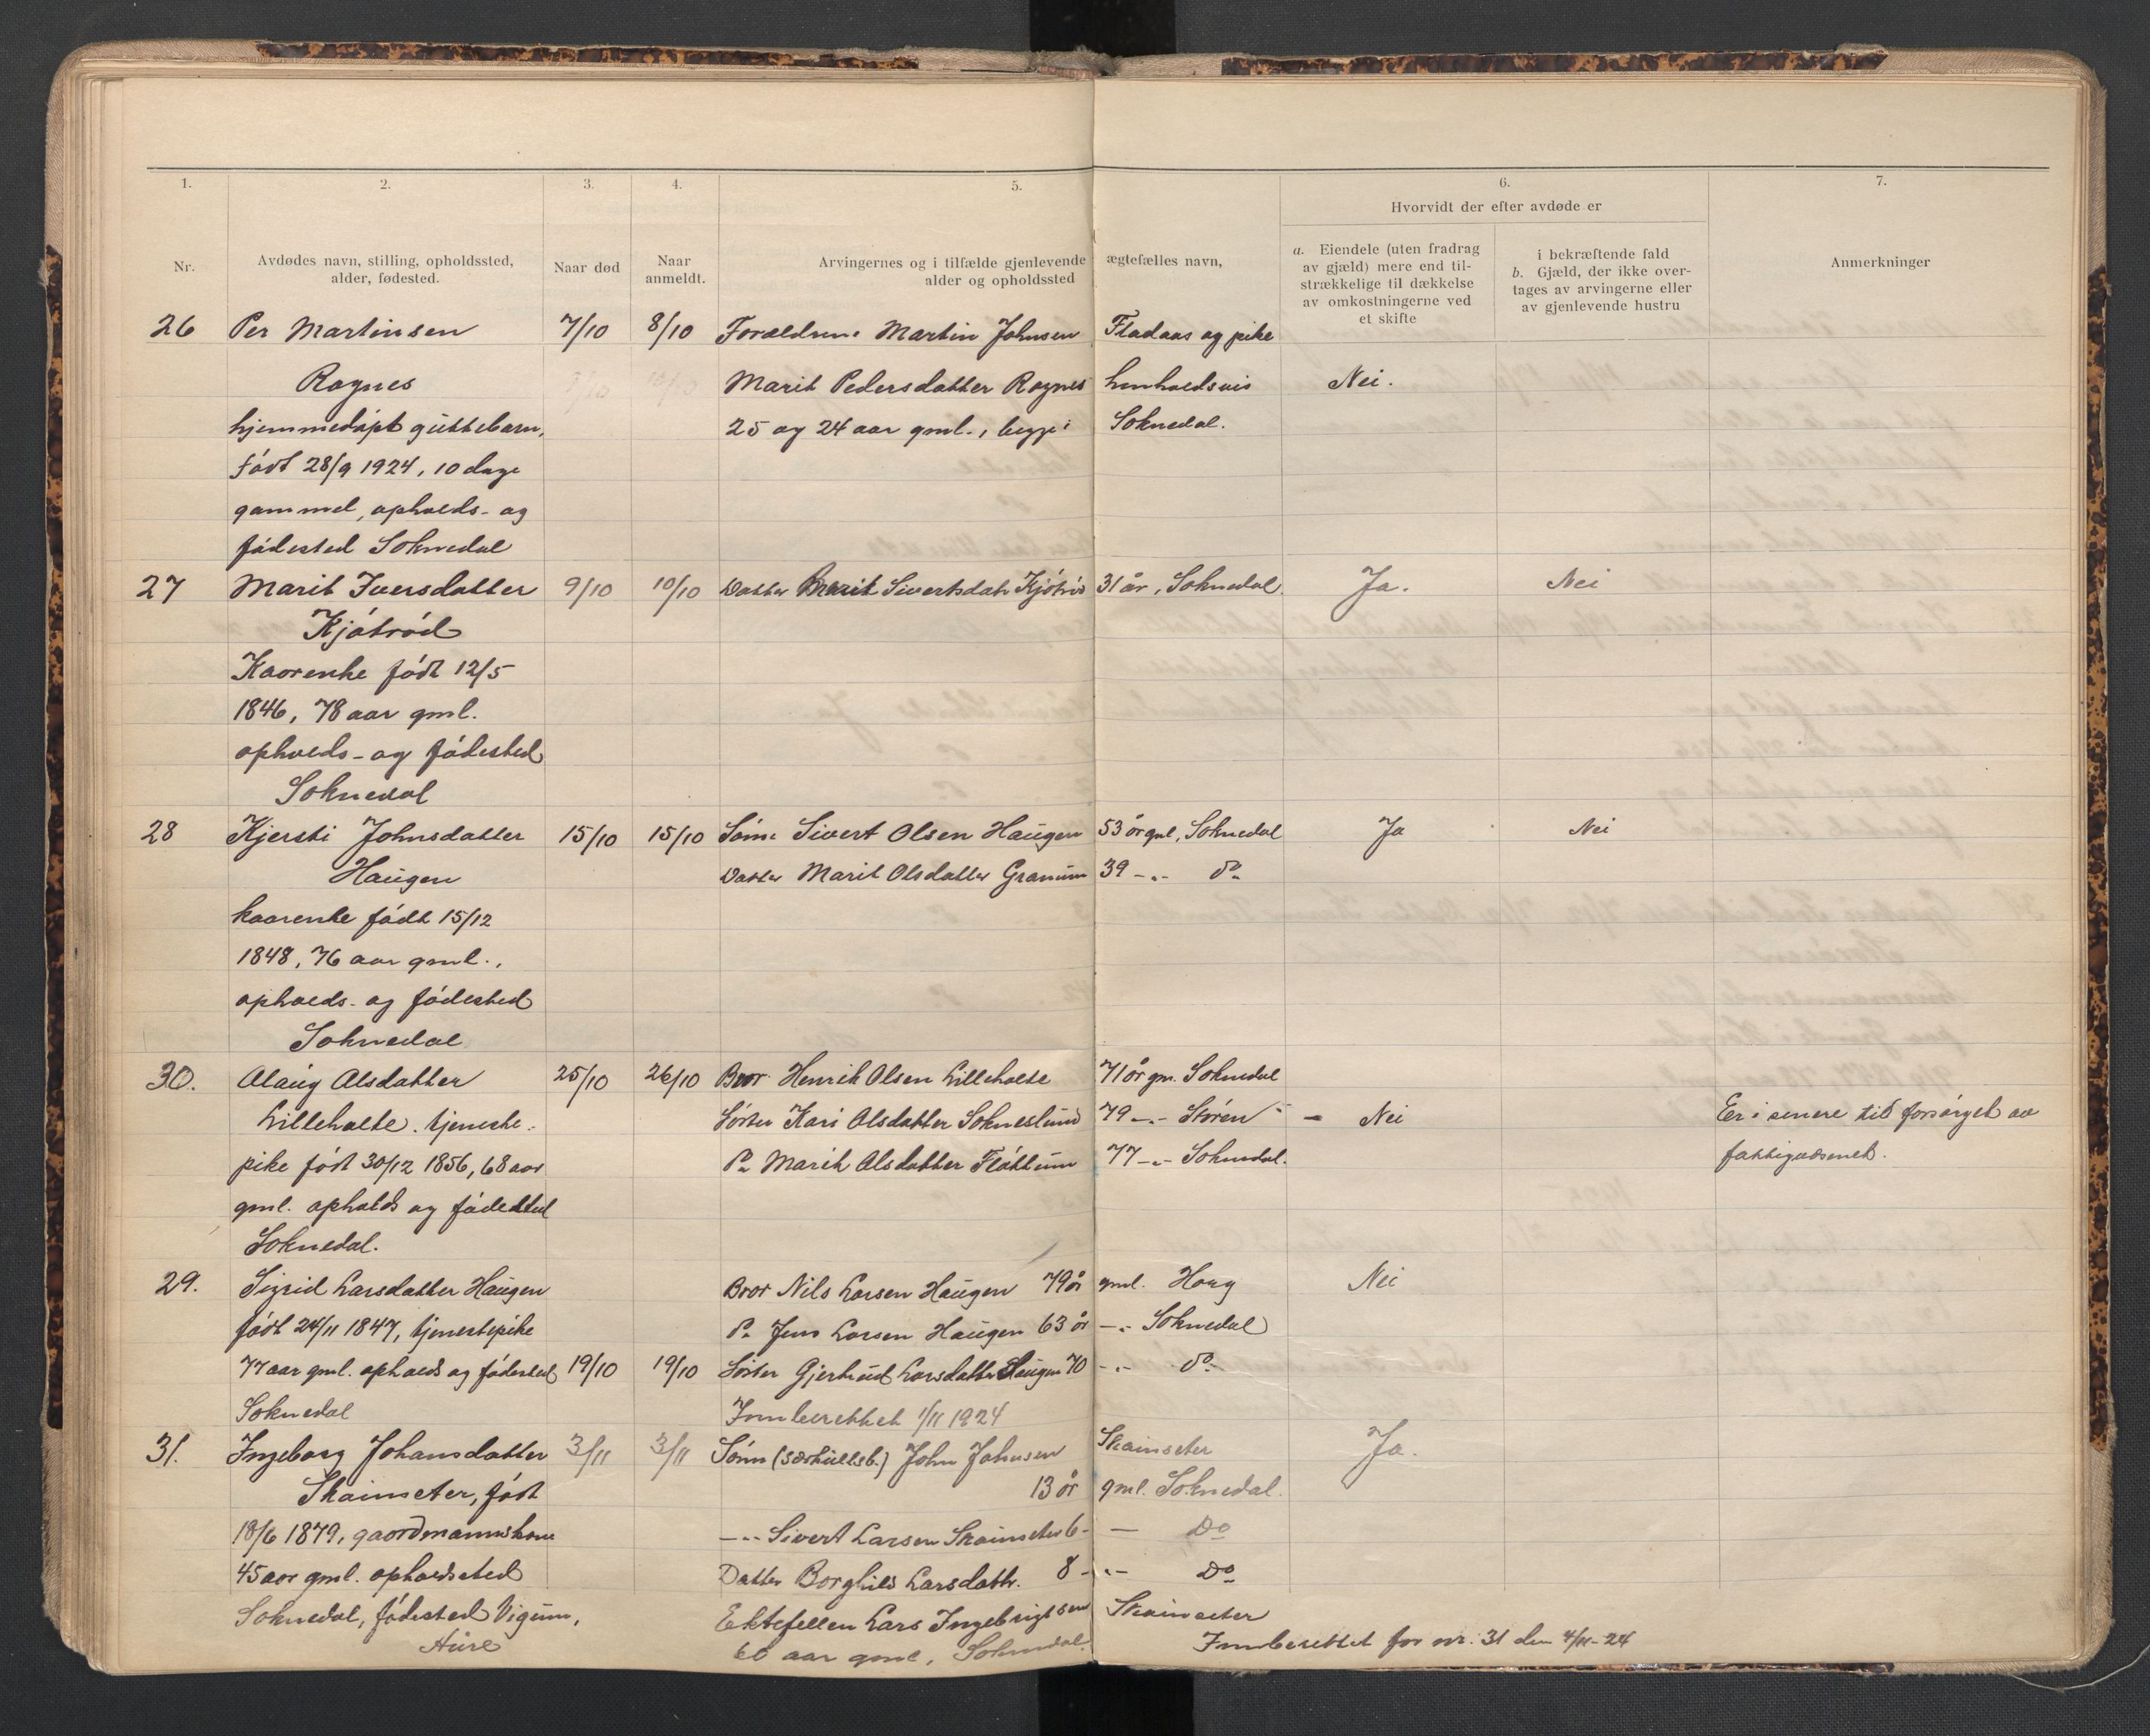 1. 2. 3. 4. 5. 6. 7.
Hvorvidt der efter avdøde er
Nr. Avdødes navn, stilling, opholdssted, alder, fødested. Naar død Naar anmeldt. Arvingernes og i tilfælde gjenlevende ægtefælles navn, alder og opholdssted
a. Eiendele (uten fradrag av gjæld) mere end tilstrækkelige til dækkelse av omkostningerne ved et skifte
i bekræftende fald b. Gjæld, der ikke overtages av arvingerne eller av gjenlevende hustru
Anmerkninger
26 Per Martinsen 7/10 8/10 Forældrene Martin Johnsen Fladaas og pike
Rognes Marit Pedersdatter Rognes henholdsvis Nei.
hjemmedøpt guttebarn, 25 og 24 aar gml., begge i Soknedal.
født 28/9 1924, 10 dage
gammel, opholds- og
fødested Soknedal
27 Marit Iversdatter 9/10 10/10 Datter Marit Sivertsdatr Kjøtrød 31 år, Soknedal. Ja. Nei
Kjøtrød
Kaarenke født 12/5
1846, 78 aar gml.
opholds- og fødested
Soknedal
28 Kjersti Johnsdatter 15/10 15/10 Sønn Sivert Olsen Haugen 53 år gml, Soknedal Ja Nei
Haugen Datter Marit Olsdatter Granum 39 -"- do
kaarenke født 15/12
1848, 76 aar gml.,
opholds- og fødested
Soknedal
30. Olaug Olsdatter 25/10 26/10 Bror Henrik Olsen Lilleholte 71 år gm. Soknedal
Lilleholte. tjeneste- Søster Kari Olsdatter Sokneslund 79 -"- Støren - Nei Er i senere tid forsørget av
pike født 30/12 1856, 68 aar Do Marit Olsdatter Fløttum 77 -"- Soknedal. fattigvesenet.
gml. opholds og fødested
Soknedal.
29. Sigrid Larsdatter Haugen Bror Nils Larsen Haugen 79 år gml. Horg Nei
født 24/11 1847, tjenestepike Do Jens Larsen Haugen 63 år -"- Soknedal
77 aar gml. opholds og fødested 19/10 19/10 Søster Gjertrud Larsdatter Haugen 70 -"- do
Soknedal Innberettet 1/11 1924
31. Ingeborg Johansdatter 3/11 3/11 Sønn (særkullsb.) John Johnsen Skainseter Ja.
Skainseter, født 13 år gml. Soknedal.
18/6 1879, gaardmannskone -"- Sivert Larsen Skainseter 6 - — Do
45 aar gml. opholdssted Datter Borghild Larsdatr. 8 - -"- Do
Soknedal, fødested Vigum, Ektefellen Lars Ingebrigtsen Skainseter
Aure 60 aar gml, Soknedal. Innberettet for nr. 31 den 4/11-24